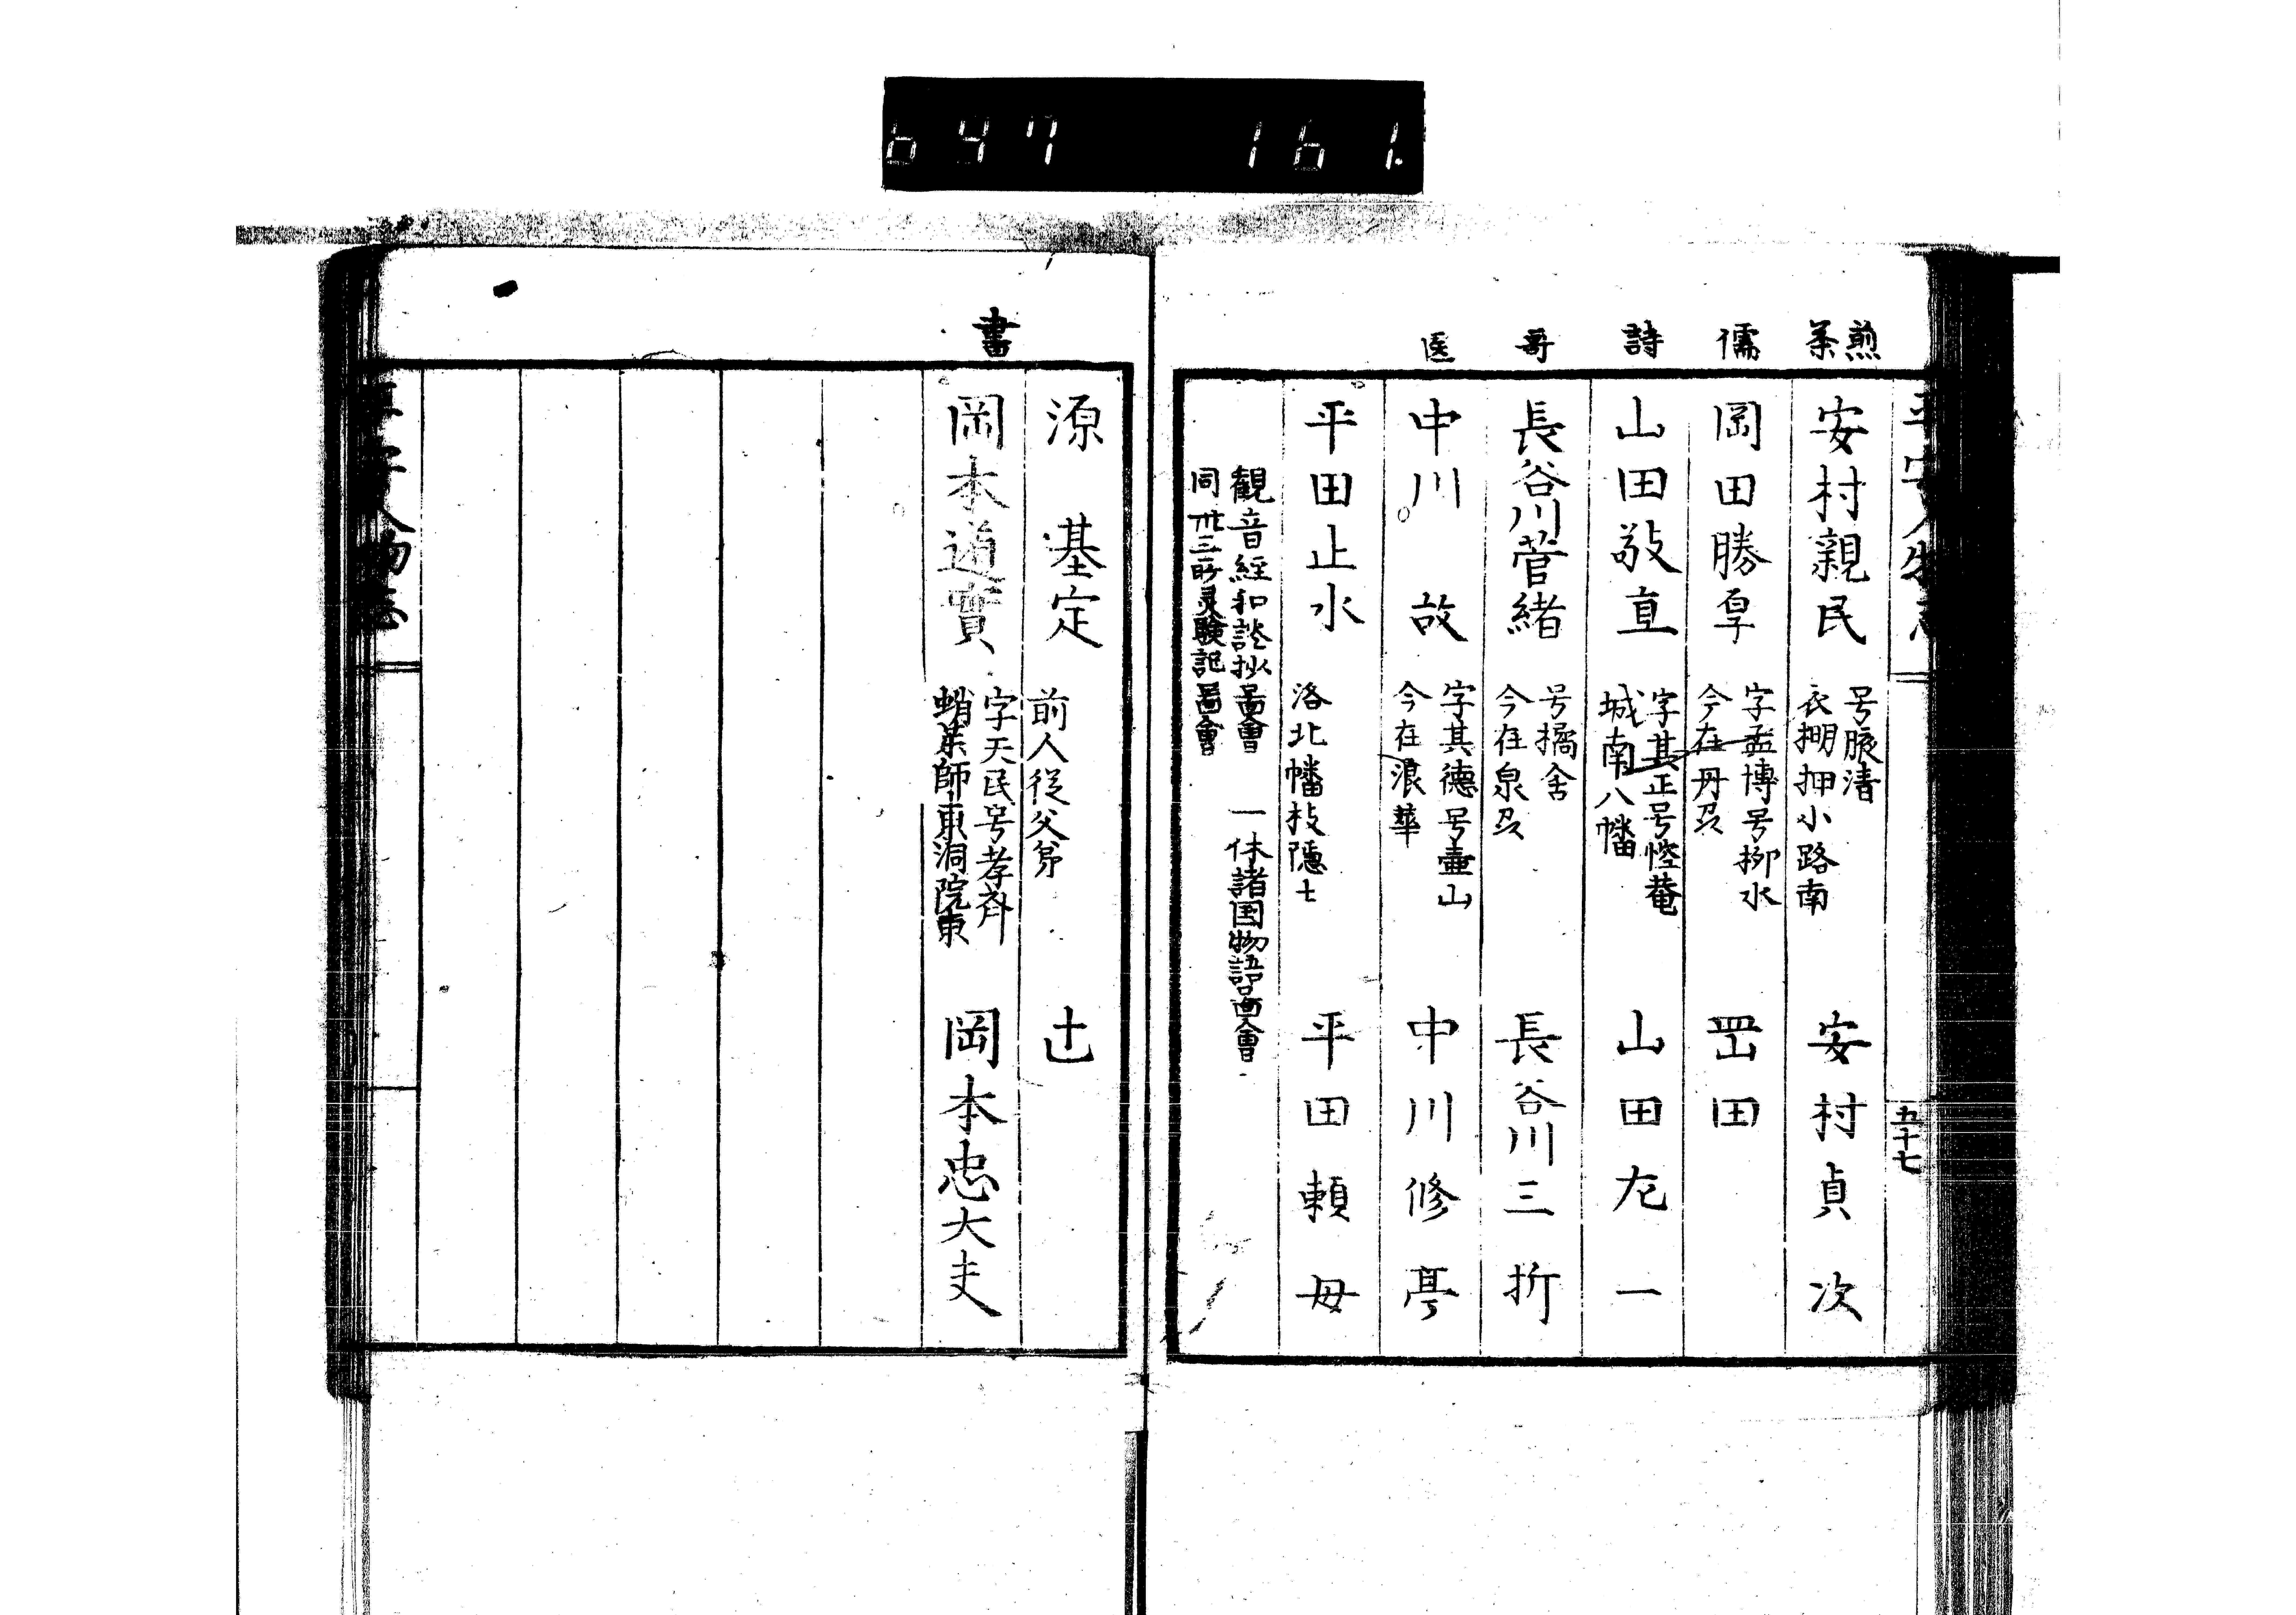 647 161.
平安人物志
五十七
煎茶
安村親民
号脉清
衣棚押小路南
安村貞次
儒
岡田勝𦤶
字孟博号柳水
今在丹及
罡田
詩
山田敬直
字其正号惺菴
城南八幡
山田左一
哥
長谷川菅緒
号橘舍
今在泉及
長谷川三折
医
中川故
字其德号壷山
今在浪華
中川修亭
平田止水
洛北幡枝隱士
平田頼母
観音經和談抄啚會 一休諸国物語畫會
同丗三所灵験記啚會
源基定
前人從父弟
辻
書
岡本道實
字天民号孝斎
蛸薬師東洞院東
岡本忠大夫
平安人物志